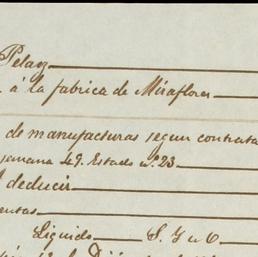 Pelaez
á la fabrica de Miraflores
de manufacturas segun contrata
semana 49. Estado nº 23
deducir
Liquido S. J. u O